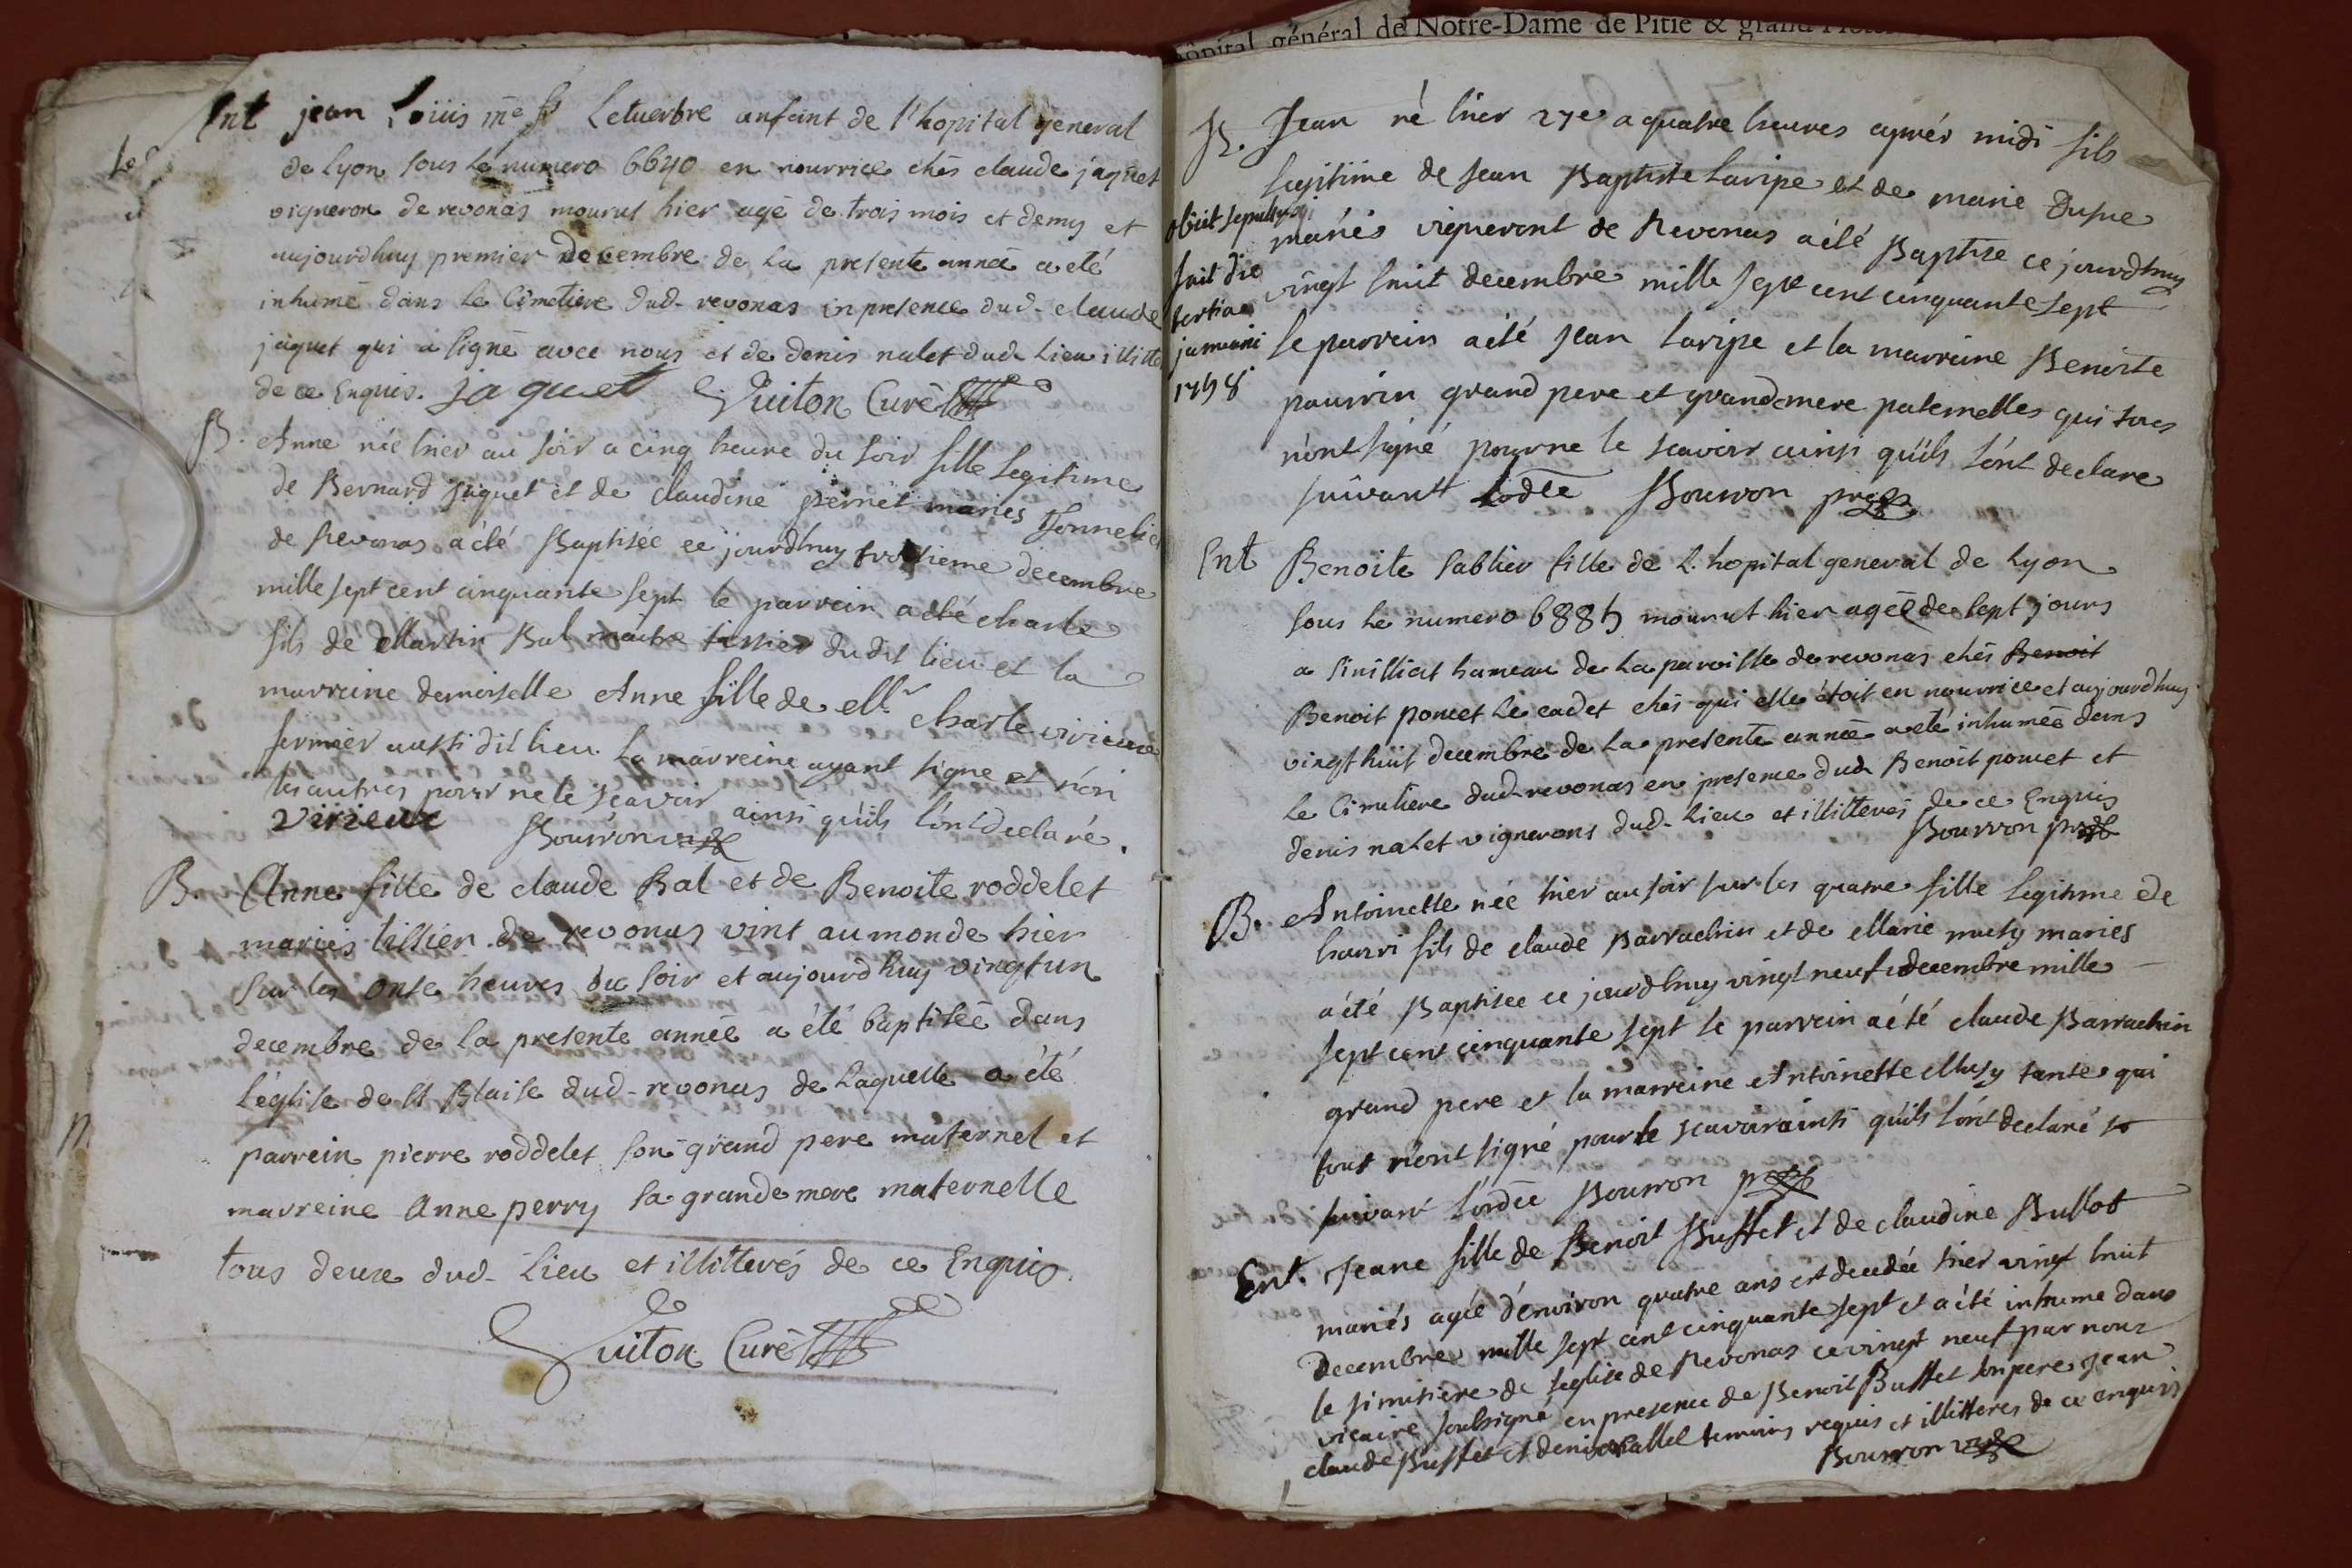 Ent jean Loüis
enfant de l'hopital general
de Lyon sous le numero 6640 en nourrice chés claude jaquet
vigneron de revonas mourut hier agé de trois mois et demy et
aujourdhuy premier decembre de la presente année a eté
inhumé dans le Cimetiere dud- revonas en presence dud- claude
jaquet qui a signé avec nous et de denis nalet dud- Lieu
de ce Enquis. jaquet Guiton Curé
B. Anne née hier au soir a cinq heure du soir fille legitime
de Bernard jaquet et de claudine pernet mariés
de Revonas a été Baptisée ce jourdhuy troisieme decembre
mille sept cent cinquante sept le parrein a été charle
fils de Martin Bal maitre tissier du dit lieu et la
marreine demoiselle Anne fille de Mr. Charle virieux
fermier aussi dit lieu la marreine ayant signe et non
les autres pour ne le scavoir ainsi qu'ils l'ont declaré.
virieux Bourron
B. Anne fille de claude Bal et de Benoite roddelet
mariés tissier de revonas vint au monde hier
sur les onse heures du soir et aujourdhuy vingt un
decembre de la presente année a été baptisée dans
l'église de st Blaise dud- revonas de laquelle a été
parrein pierre roddelet son grand pere maternel et
marreine anne perry sa grande mere maternelle
tous deux dud- Lieu et illitterés de ce Enquis.
Guiton Curé
hôpital général de Notre-Dame de Pitié & grand
B. Jean né hier 27e a quatre heures aprés midi fils
legitime de Jean Baptiste Laripe et de marie
mariés vigneront de Revonas a été Baptise ce jourdhuy
vingt huit decembre mille sept cent cinquante sept
le parrein a été Jean laripe et la marreine Benoite
pauvrin grand pere et grand mere paternelles qui tous
n'ont signé pour ne le scavoir ainsi qu'ils l'ont declare
suivant Bourron
obiit sepultus
fuit die
tertia
januarii
1758
Ent Benoite Sablier fille de L'hopital general de Lyon
sous le numero 6885 mourut hier agée de sept jours
a Sinilliat hameau de la paroisse de revonas chés Benoit
Benoit poncet le cadet chés qui elle étoit en nourrice et aujourdhuy
vingt huit decembre de la presente année a eté inhumée dans
le Cimetiere dud-revonas en presence dud Benoit poncet et
denis nalet vignerons dud- Lieu et illitterés de ce Enquis
Bourron
B. Antoinette née hier au soir sur les quatre fille legitime de
fils de claude Barrachin et de Marie musy mariés
a été Baptisee ce jourdhuy vingt neuf decembre mille
sept cent cinquante sept le parrein a été claude Barrachin
grand pere et la marreine Antoinette Musy tante qui
tout n'ont signé pour le scavoir ainsi qu'ils l'ont declaré
suivant Bourron
Ent. Jeane fille de Benoit Buffet et de claudine Bullot
mariés agée d'environ quatre ans est decedée hier vingt huit
Decembre mille sept cent cinquante sept et a été inhume dans
le simitiere de l'eglise de Revonas ce vingt neuf par nous
vicaire soubsigné en presence de Benoit Buffet son pere jean
claude Buffet et denis nallet temoins requis et illitteres de ce enquis
Bourron